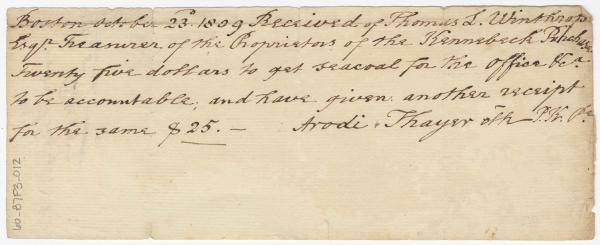 Boston October 23d. 1809 Received of Thomas L. Winthrop
Esqr. Treasurer of the Proprietors of the Kennebeck Purchase
Twenty five dollars to get seacoal for the office &ca.
to be accountable, and have given another receipt
for the same $25.— Arodi Thayer P.K. P.
60-87F3-012